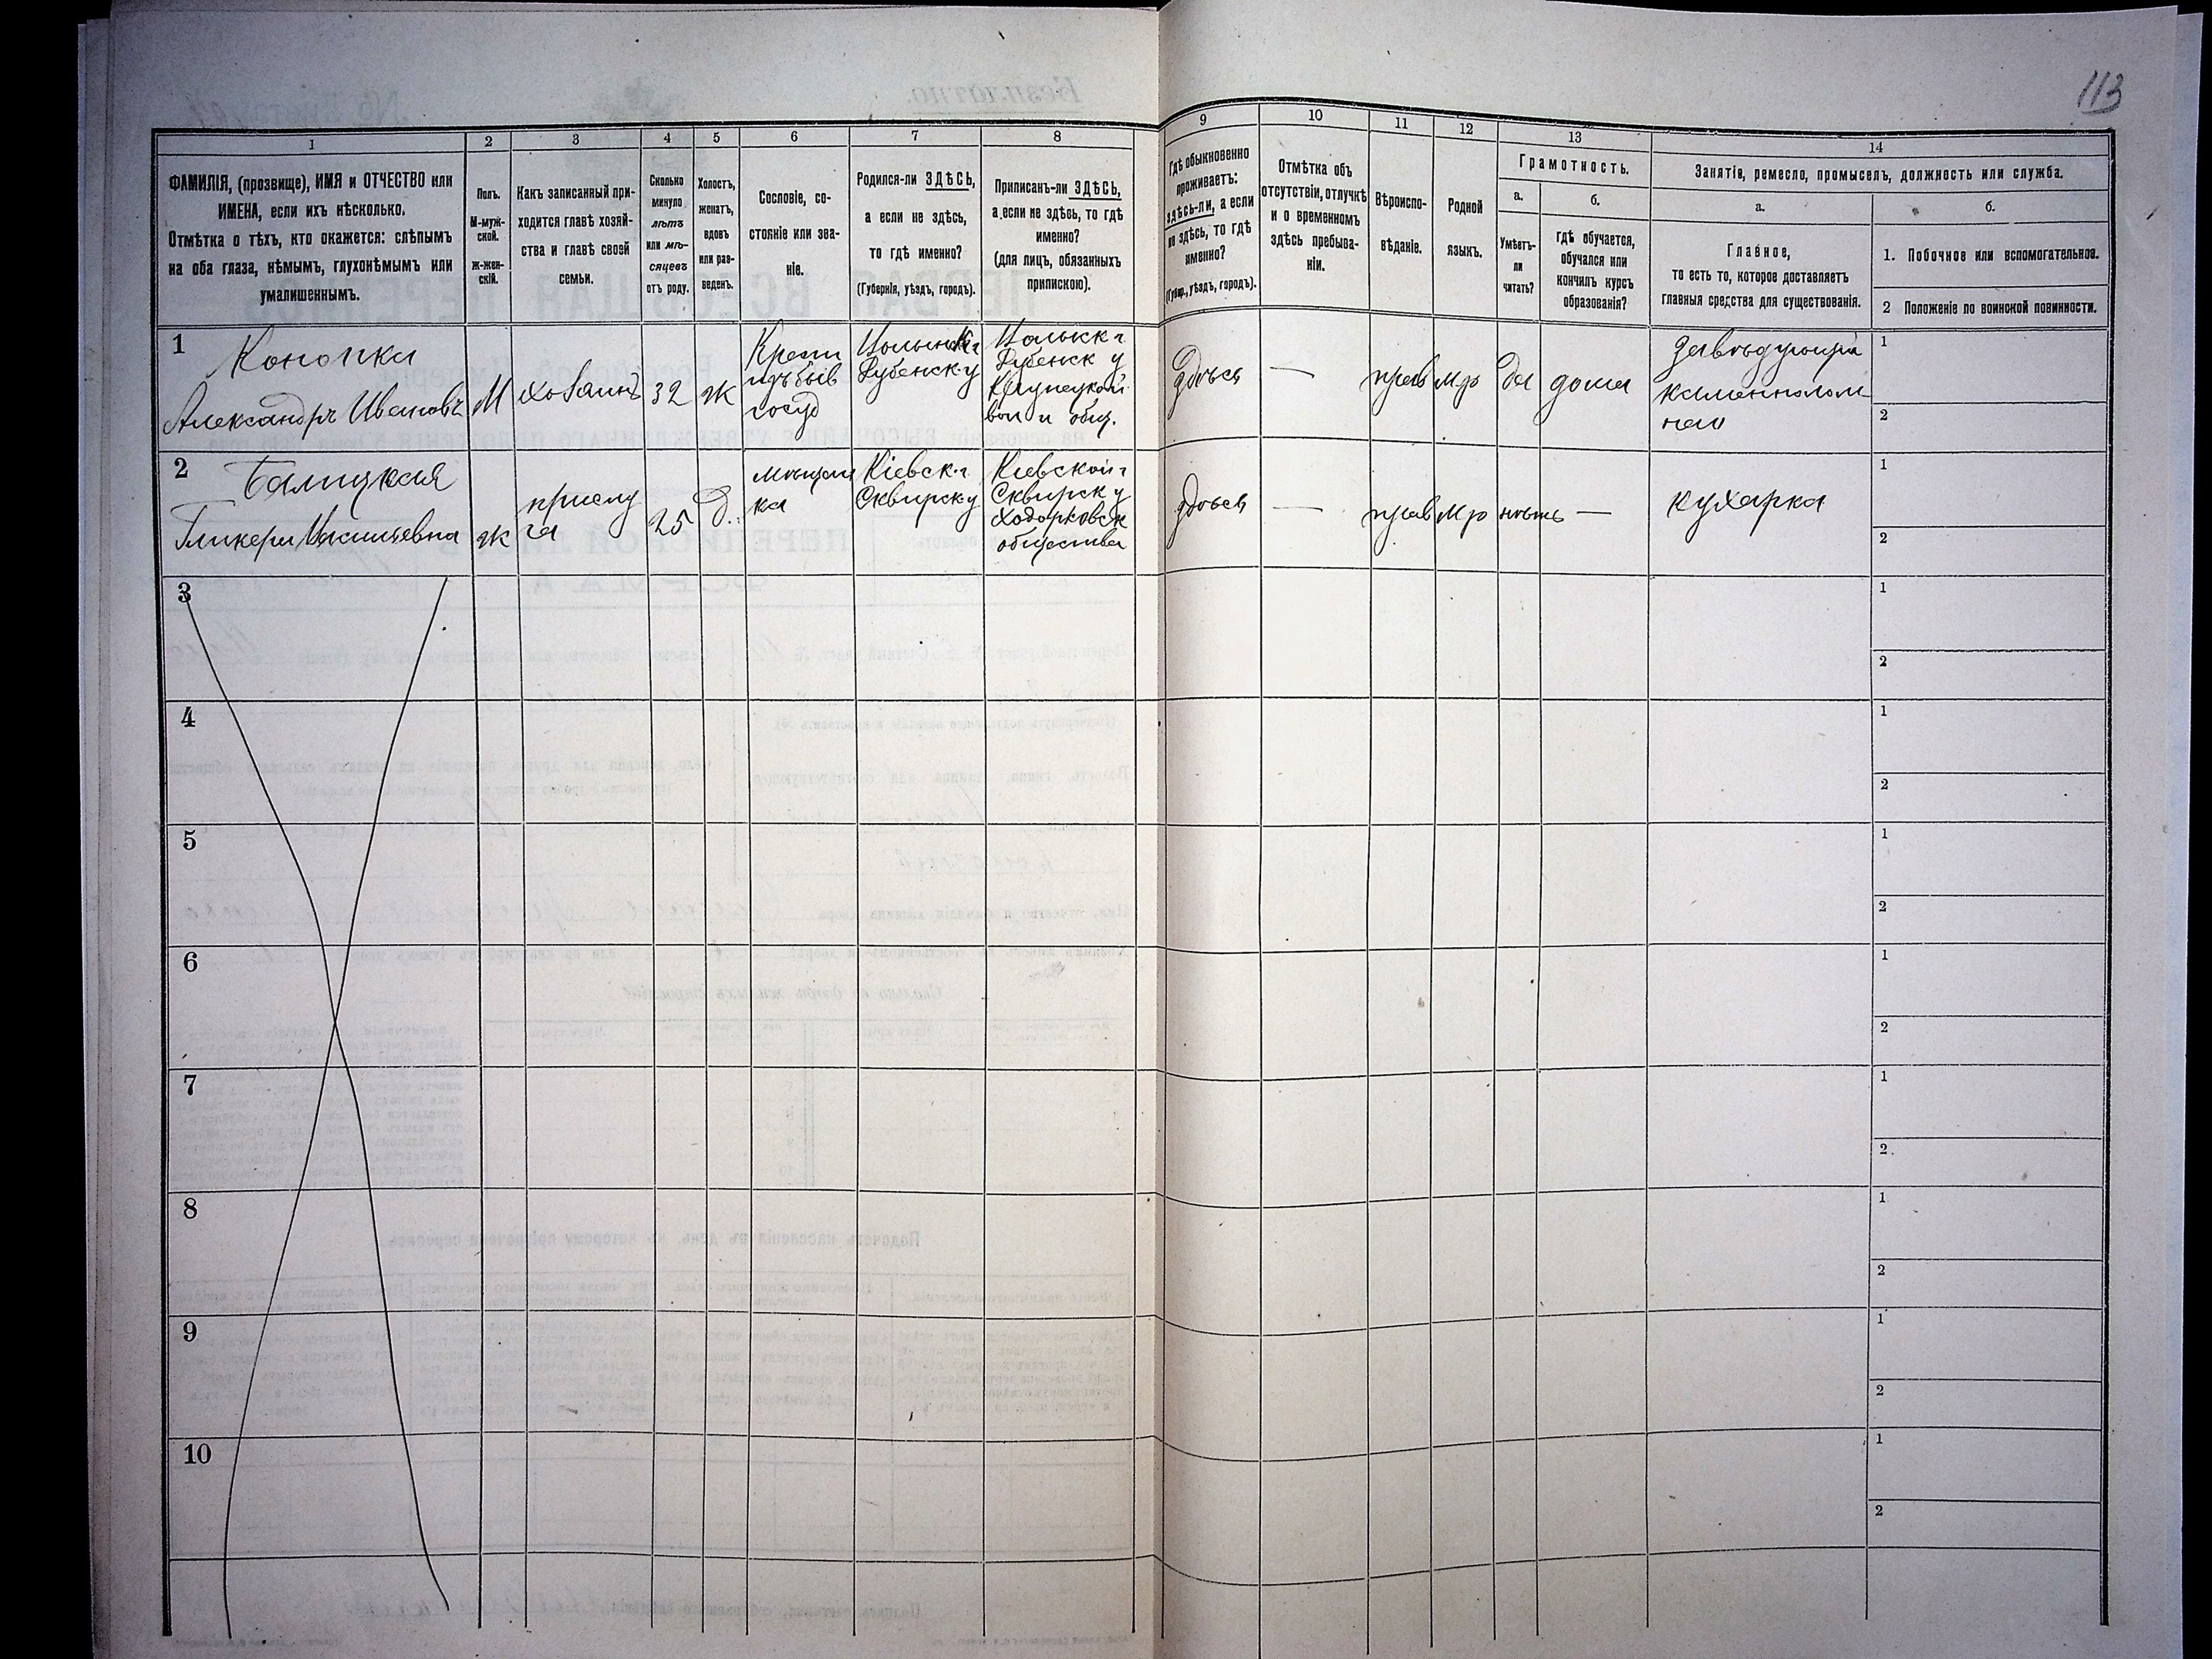 113
1
2
3
4
5
6
7
8
9
10
11
12
13
14
ФАМИЛІЯ, (прозвище), ИМЯ и ОТЧЕСТВО или
ИМЕНА, если ихъ нѣсколько.
Отмѣтка о тѣхъ, кто окажется: слѣпымъ
на оба глаза, нѣмымъ, глухонѣмымъ или
умалишеннымъ.
Полъ.
М-муж-
ской.
Ж-жен-
скій.
Какъ записанный при-
ходится главѣ хозяй-
ства и главѣ своей
семьи.
Сколько
минуло
лѣтъ
или мѣ-
сяцевъ
отъ роду.
Холостъ,
женатъ,
вдовъ
или раз-
веденъ.
Сословіе, со-
стояніе или зва-
ніе.
Родился-ли ЗДѢСЬ,
а если не здѣсь,
то гдѣ именно?
(Губернія, уѣздъ, городъ).
Приписанъ-ли ЗДѢСЬ,
а если не здѣсь, то гдѣ
именно?
(для лицъ, обязанныхъ
припискою).
Гдѣ обыкновенно
проживаетъ:
здѣсь-ли, а если
не здѣсь, то гдѣ
именно?
(Губер., уѣздъ, городъ).
Отмѣтка объ
отсутствіи, отлучкѣ
и о временномъ
здѣсь пребыва-
ніи.
Вѣроиспо-
вѣданіе.
Родной
языкъ.
Грамотность.
а.
Умѣетъ-
ли
читать?
б.
гдѣ обучается,
обучался или
кончилъ курсъ
образованія?
Занятіе, ремесло, промыселъ, должность или служба.
а.
Главное,
то есть то, которое доставляетъ
главныя средства для существованія.
б.
1. Побочное или вспомогательное.
2 Положеніе по воинской повинности.
1
Александръ Ивановъ
М
хозаинъ
32
ж
Крест
изъ быв
госуд
Дубенск у
Дубенск у
вол и общ.
здѣсь
—
прав
мр
да
дома
Завѣдующій
каменнолом
1
2
2
Балицкая
Гликерия
ж
прислу
га
25
д.
мѣщан
ка
Кіевск г
Сквирск у
Кіевской г
Сквирск у
Ходорковск
общества
здѣсь
—
прав
мр
нѣтъ
—
кухарка
1
2
3
1
2
4
1
2
5
1
2
6
1
2
7
1
2
8
1
2
9
1
2
10
1
2